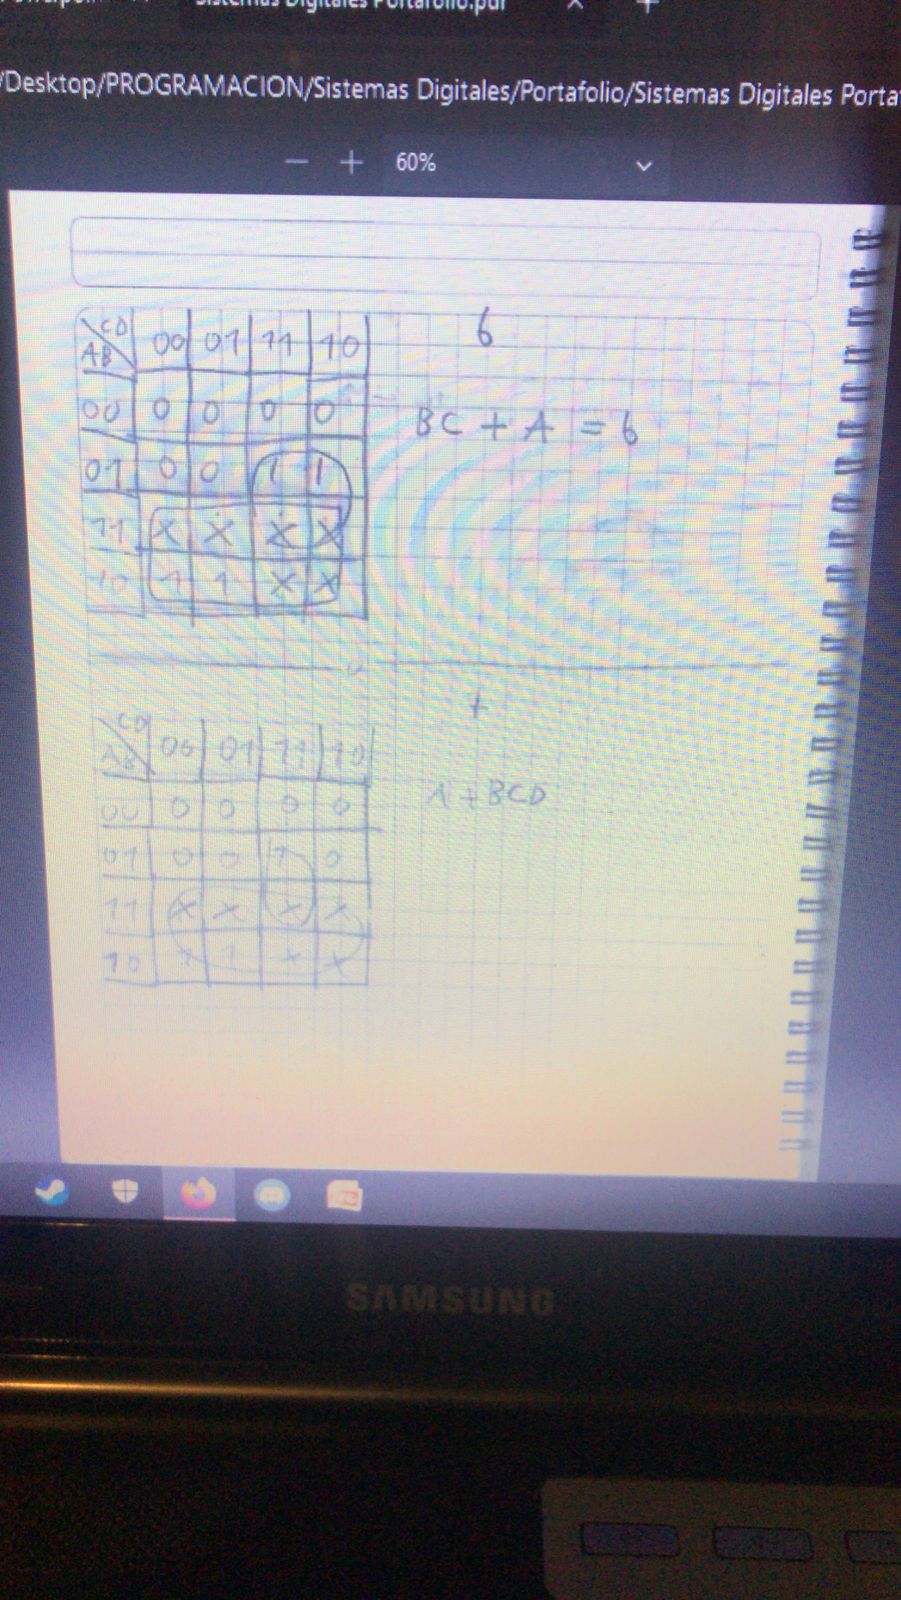 Sistemas Digitales Portafolio.pdf
/Desktop/PROGRAMACION/Sistemas Digitales/Portafolio/Sistemas Digitales Porta
60%
CD
AB 00 01 11 10
00 0 0 0 0
01 0 0 1 1
11 X X X X
10 1 1 X X
6
BC + A = 6
CD
AB 00 01 11 10
00 0 0 0 0
01 0 0 1 0
11 X X X X
10 1 1 X X
A + BCD
SAMSUNG